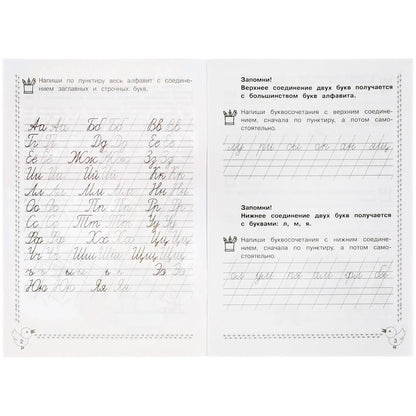 Напиши по пунктиру весь алфавит с соедине-
нием заглавных и строчных букв.
Аа Аа Бб Бб Вв Вв
Гг Гг Дд Дд Ее Ее
Её Её Жж Жж Зз Зз
Ии Ии Йй Йй Кк Кк
Лл Лл Мм Мм Нн Нн
Оо Оо Пп Пп Рр Рр
Сс Сс Тт Тт Уу Уу
Фф Фф Хх Хх Цц Цц
Чч Чч Шш Шш Щщ Щщ
ъ ъ ы ы ь ь Ээ Ээ
Юю Юю Яя Яя
2
Запомни!
Верхнее соединение двух букв получается
с большинством букв алфавита.
Напиши буквосочетания с верхним соедине-
нием, сначала по пунктиру, а потом само-
стоятельно.
Запомни!
Нижнее соединение двух букв получается
с буквами: л, м, я.
Напиши буквосочетания с нижним соедине-
нием, сначала по пунктиру, а потом само-
стоятельно
ол ум пя ам фя бя
3